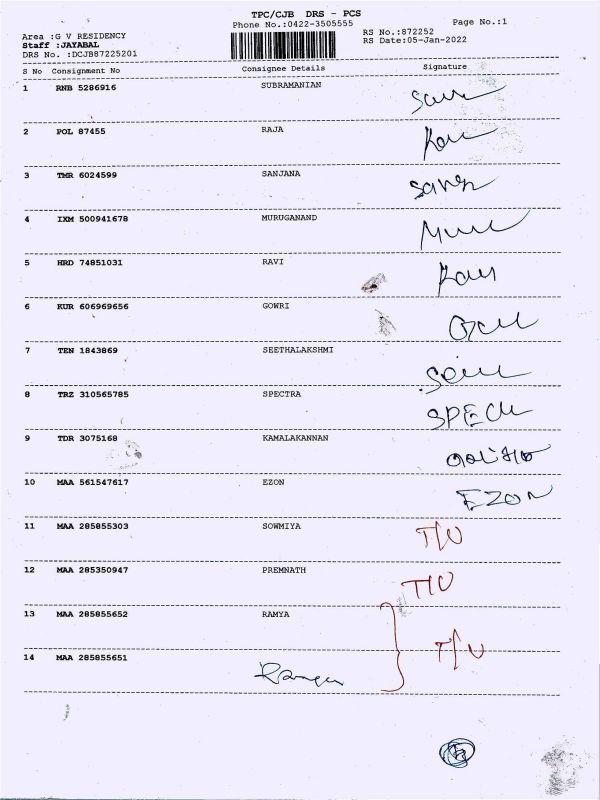 TPC/CJB DRS - PCS
Phone No.:0422-3505555
Page No.:1
Area :G V RESIDENCY
Staff :JAYABAL
DRS No. :DCJB87225201
RS No.:872252
RS Date:05-Jan-2022
S No Consignment No Consignee Details Signature
1 RNB 5286916 SUBRAMANIAN
2 POL 87455 RAJA
3 TMR 6024599 SANJANA
4 IXM 500941678 MURUGANAND
5 HRD 74851031 RAVI
6 KUR 606969656 GOWRI
7 TEN 1843869 SEETHALAKSHMI
8 TRZ 310565785 SPECTRA
9 TDR 3075168 KAMALAKANNAN
10 MAA 561547617 EZON EZON
11 MAA 285855303 SOWMIYA T/U
12 MAA 285350947 PREMNATH T/U
13 MAA 285855652 RAMYA T/U
14 MAA 285855651